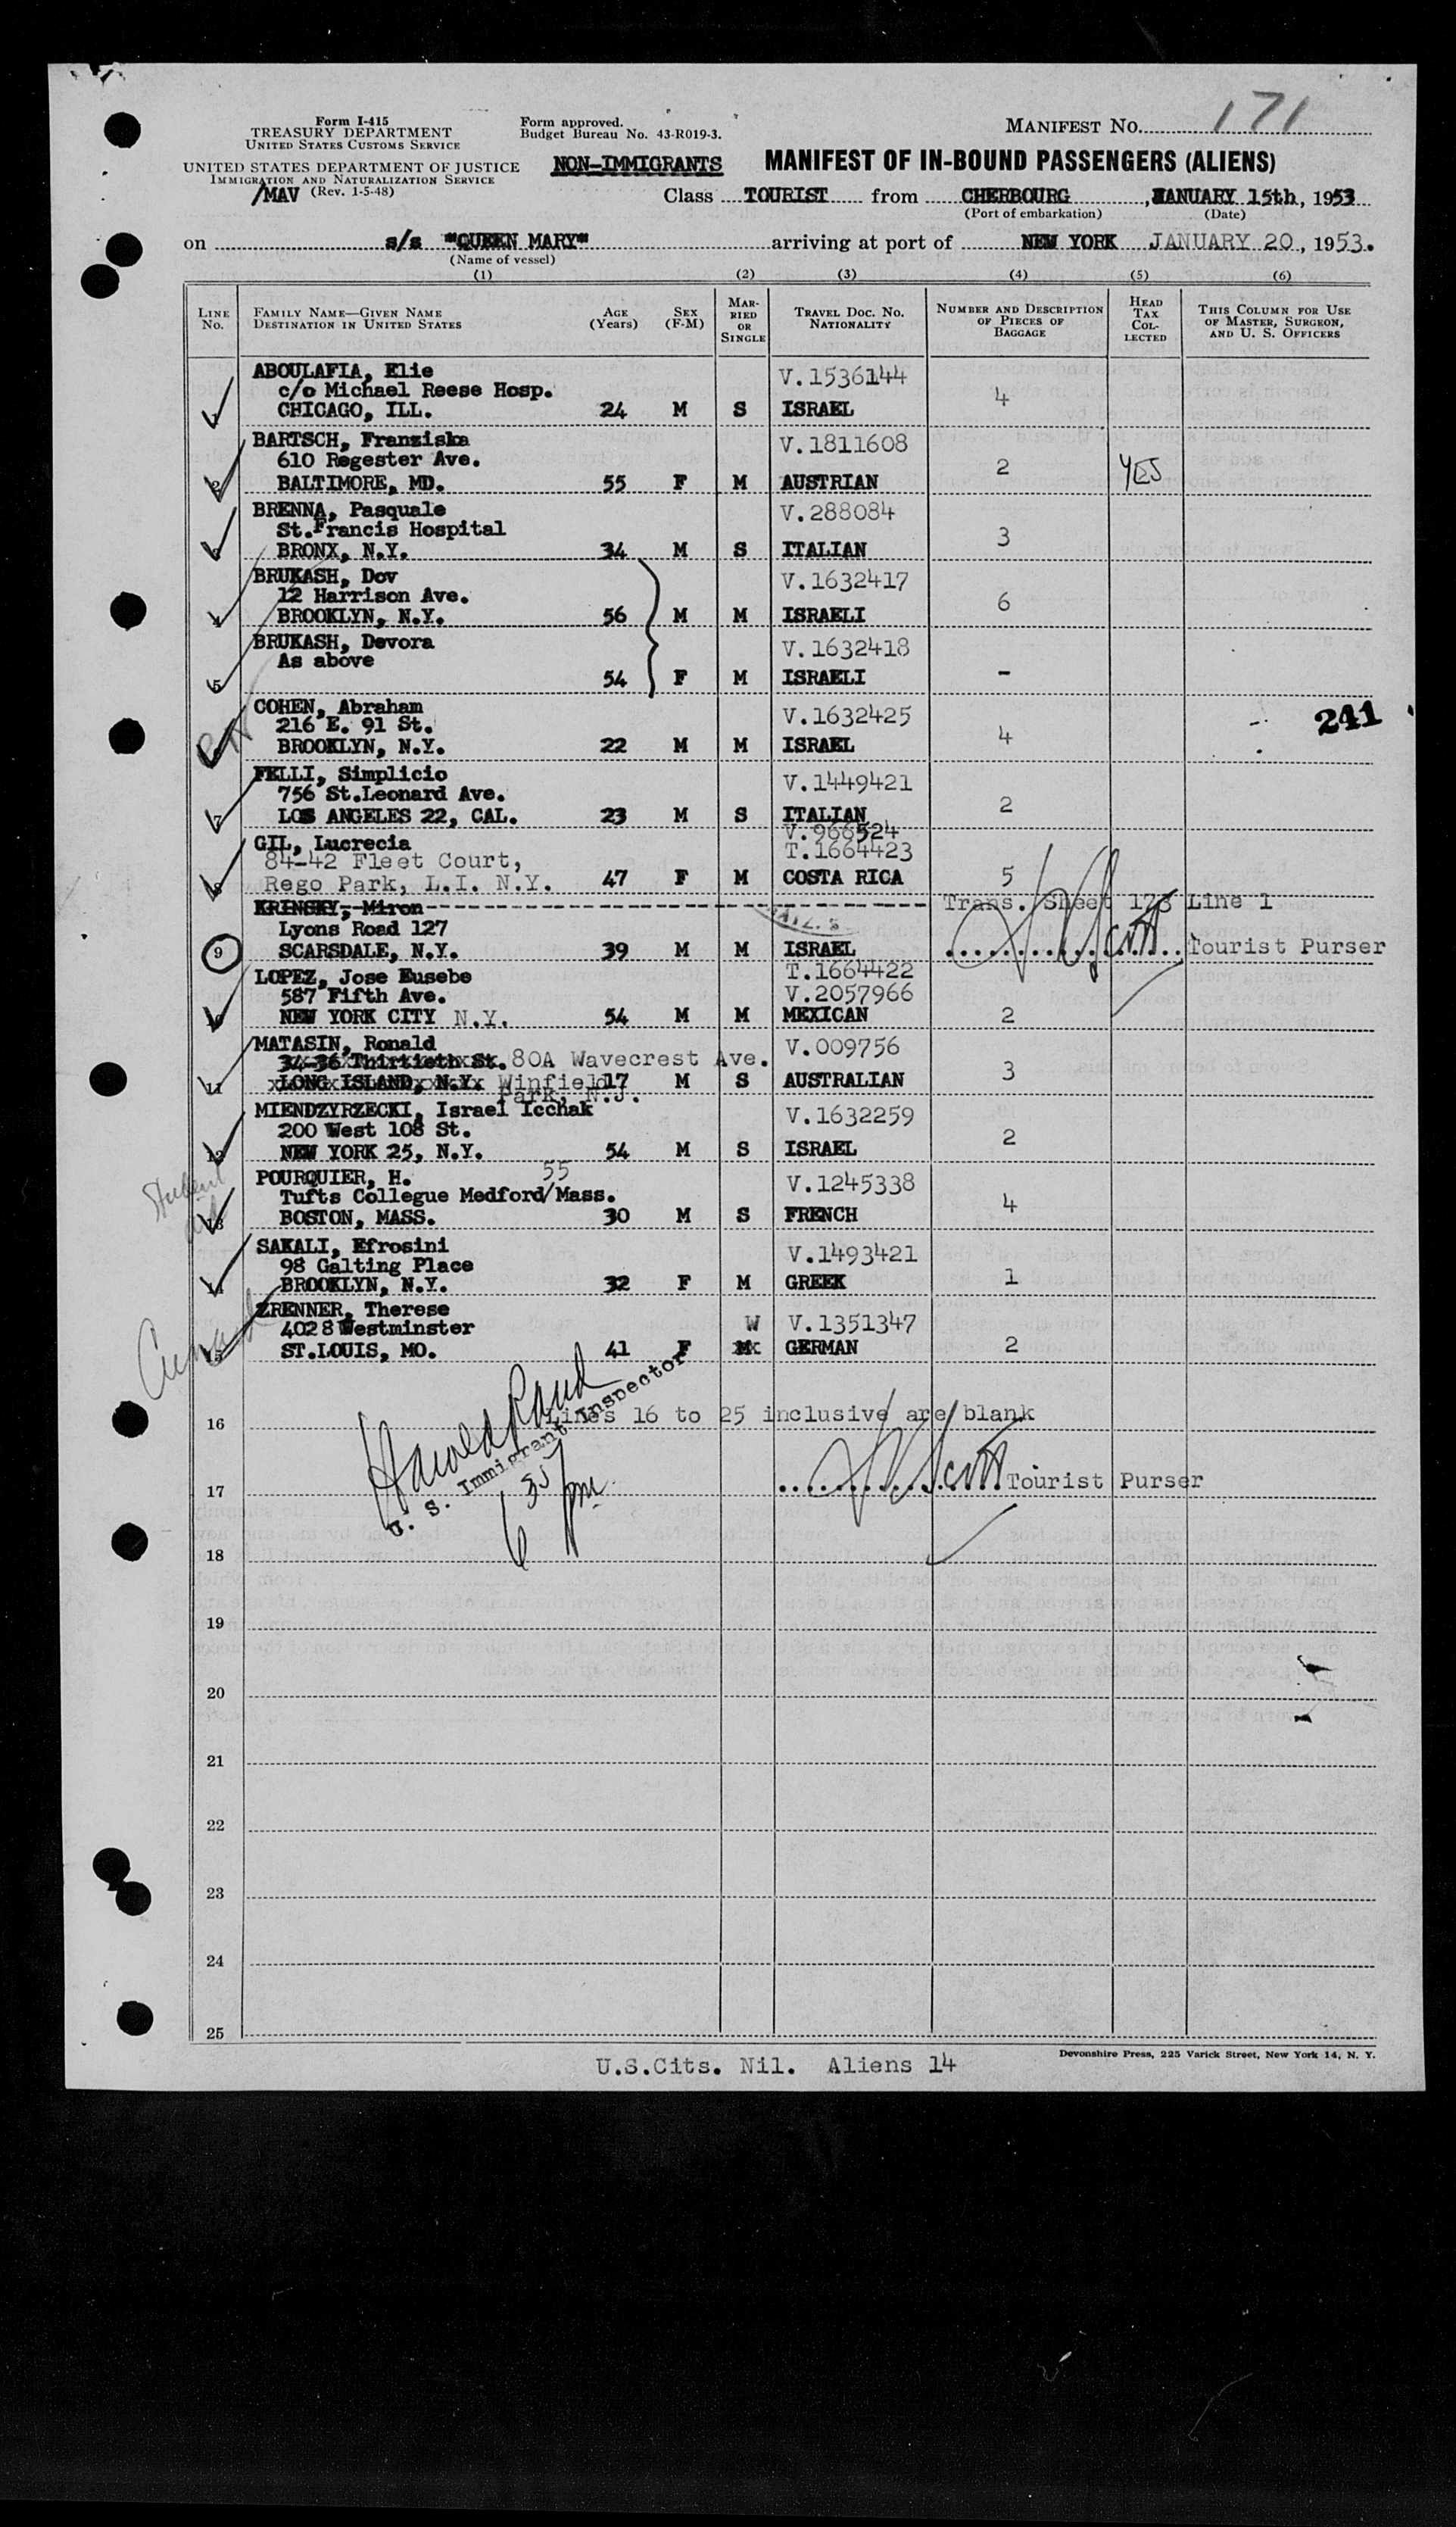 Form I-415
TREASURY DEPARTMENT
UNITED STATES CUSTOMS SERVICE
UNITED STATES DEPARTMENT OF JUSTICE
IMMIGRATION AND NATURALIZATION SERVICE
/MAV (Rev. 1-5-48)
Form approved.
Budget Bureau No. 43-R019-3.
MANIFEST NO. 171
NON-IMMIGRANTS MANIFEST OF IN-BOUND PASSENGERS (ALIENS)
Class TOURIST from CHERBOURG, JANUARY 15th, 1953
(Port of embarkation) (Date)
on s/s "QUEEN MARY" arriving at port of NEW YORK JANUARY 20, 1953.
(Name of vessel)
(1) (2) (3) (4) (5) (6)
LINE No. FAMILY NAME—GIVEN NAME DESTINATION IN UNITED STATES AGE (Years) SEX (F-M) MARRIED OR SINGLE TRAVEL DOC. NO. NATIONALITY NUMBER AND DESCRIPTION OF PIECES OF BAGGAGE HEAD TAX COLLECTED THIS COLUMN FOR USE OF MASTER, SURGEON, AND U. S. OFFICERS
ABOULAFIA, Elie V.1536144
c/o Michael Reese Hosp. 4
1 CHICAGO, ILL. 24 M S ISRAEL
BARTSCH, Franziska V.1811608
610 Regester Ave. 2 YES
2 BALTIMORE, MD. 55 F M AUSTRIAN
BRENNA, Pasquale V.288084
St.Francis Hospital 3
3 BRONX, N.Y. 34 M S ITALIAN
BRUKASH, Dov V.1632417
12 Harrison Ave. 6
4 BROOKLYN, N.Y. 56 M M ISRAELI
BRUKASH, Devora V.1632418
As above -
5 54 F M ISRAELI
COHEN, Abraham V.1632425 241
216 E. 91 St. 4
BROOKLYN, N.Y. 22 M M ISRAEL
FELLI, Simplicio V.1449421
756 St.Leonard Ave. 2
7 LOS ANGELES 22, CAL. 23 M S ITALIAN
V.966524
GIL, Lucrecia T.1664423
84-42 Fleet Court,
8 Rego Park, L.I. N.Y. 47 F M COSTA RICA 5
KRINSKY, Miron Trans. Sheet 173 Line 1
Lyons Road 127
9 SCARSDALE, N.Y. 39 M M ISRAEL Scott Tourist Purser
LOPEZ, Jose Eusebe T.1664422
587 Fifth Ave. V.2057966
10 NEW YORK CITY N.Y. 54 M M MEXICAN 2
MATASIN, Ronald V.009756
34-36 Thirtieth St. 80A Wavecrest Ave. 3
11 LONG ISLAND, N.Y. Winfield 17 M S AUSTRALIAN
Park, N.J.
MIENDZYRZECKI, Israel Icchak V.1632259
200 West 108 St. 2
12 NEW YORK 25, N.Y. 54 M S ISRAEL
POURQUIER, H. 55 V.1245338
Student Tufts Collegue Medford/Mass. 4
13 BOSTON, MASS. 30 M S FRENCH
SAKALI, Efrosini V.1493421
98 Galting Place 1
14 BROOKLYN, N.Y. 32 F M GREEK
ZRENNER, Therese V.1351347
4028 Westminster W
15 ST.LOUIS, MO. 41 F M GERMAN 2
16 Lines 16 to 25 inclusive are blank
Harold Rand
U. S. Immigrant Inspector
6 35 pm
17 Scott Tourist Purser
18
19
20
21
22
23
24
25
U.S.Cits. Nil. Aliens 14
Devonshire Press, 225 Varick Street, New York 14, N. Y.